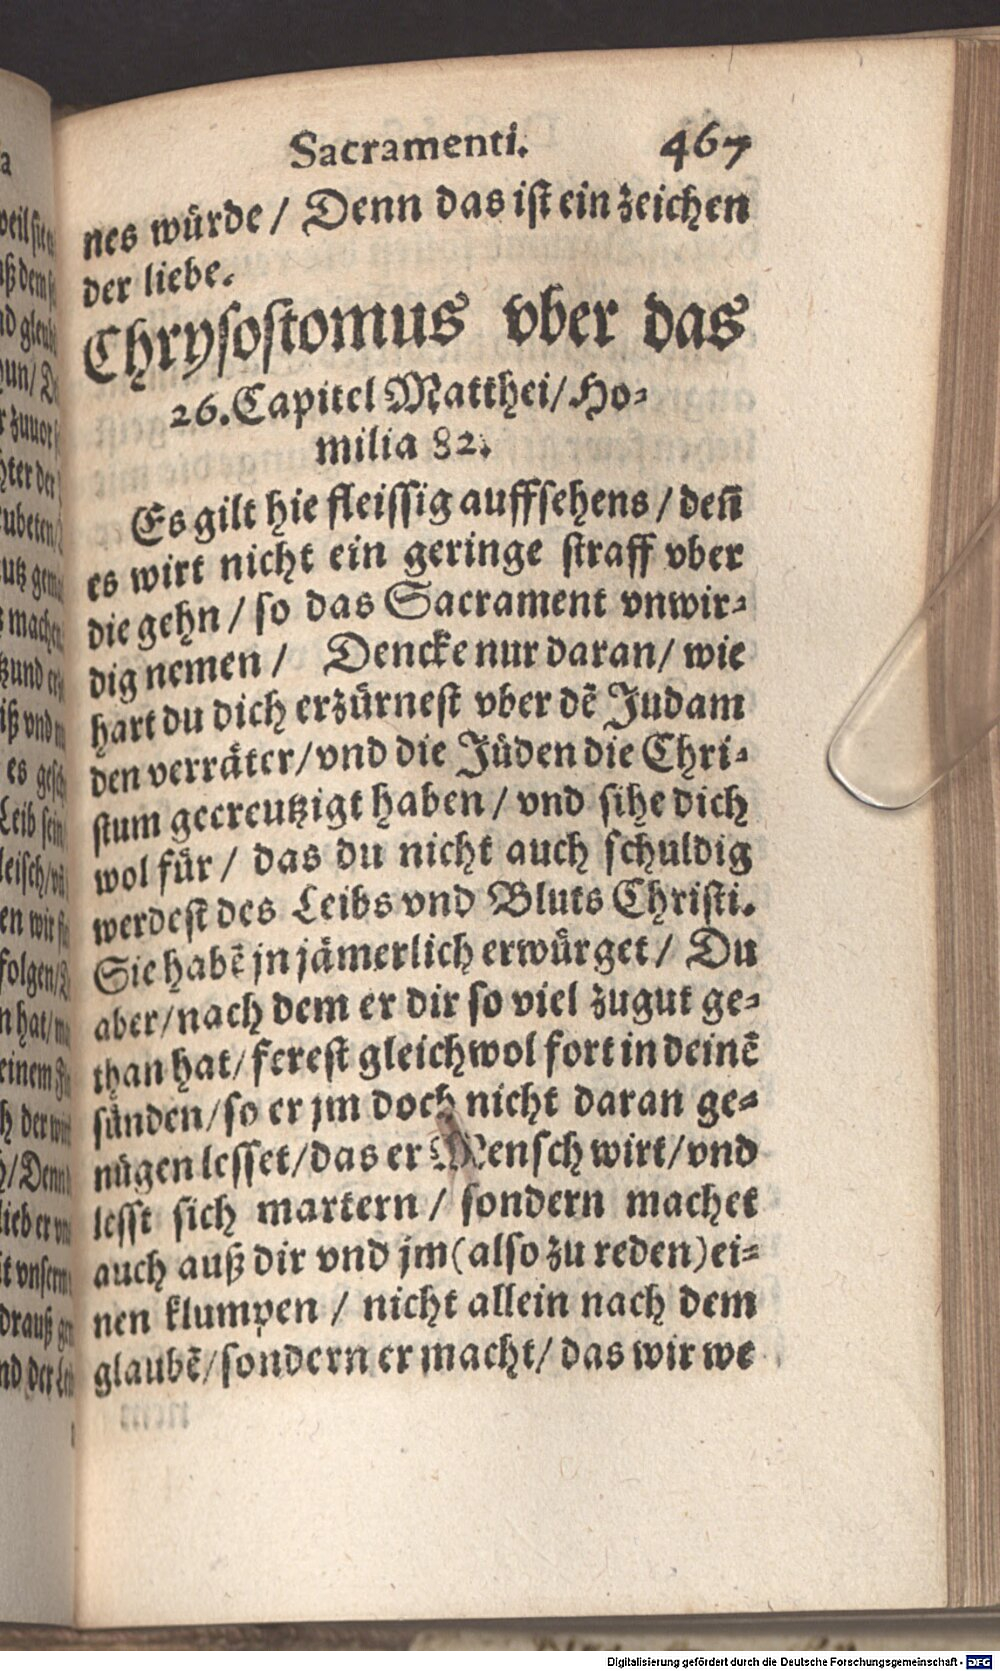 Sacramenti. 467
nes würde / Denn das ist ein zeichen
der liebe.
Chrysostomus vber das
26. Capitel Matthei / Ho-
milia 82.
Es gilt hie fleissig auffsehens / deñ
es wirt nicht ein geringe straff vber
die gehn / so das Sacrament vnwir-
dig nemen / Dencke nur daran / wie
hart du dich erzürnest vber dẽ Judam
den verräter / vnd die Jüden die Chri-
stum gecreutzigt haben / vnd sihe dich
wol für / das du nicht auch schuldig
werdest des Leibs vnd Bluts Christi.
Sie habẽ jn jämerlich erwürget / Du
aber / nach dem er dir so viel zugut ge-
than hat / ferest gleichwol fort in deinẽ
sünden / so er jm doch nicht daran ge-
nügen lesset / das er Mensch wirt / vnd
lesst sich martern / sondern machet
auch auß dir vnd jm (also zu reden) ei-
nen klumpen / nicht allein nach dem
glaubẽ / sondern er macht / das wir we
Digitalisierung gefördert durch die Deutsche Forschungsgemeinschaft - DFG